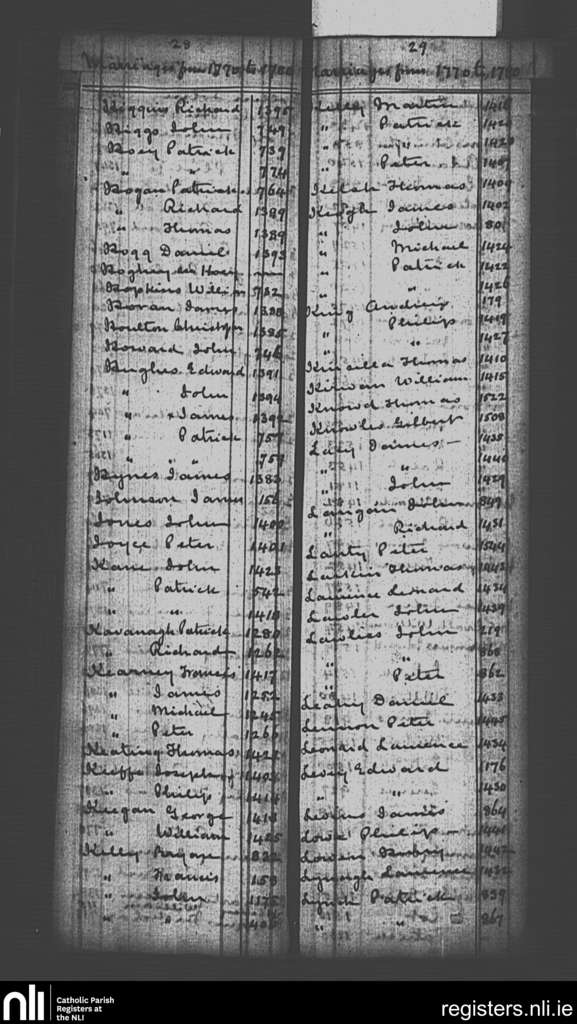 28
Marriages from 1770 to 1780
Higgins Richard 1395
Higgs John 749
Hoey Patrick 739
" " 774
Hogan Patrick 764
" Richard 1389
" Thomas 1389
Hogg Daniel 1393
Hopkins William 732
Horan James
Houlton Christopr 1385
Howard John 746
Hughes Edward 1391
" John 1394
" James 1392
" Patrick 757
" " 759
Hynes James 1383
Johnson James 156
Jones John 1402
Joyce Peter 1401
Kane John 1423
" Patrick 542
" " 1410
Kavanagh Patrick 1280
" Richard 1262
Kearney Francis 1417
" James 1252
" Michael 1245
" Peter 1260
Keating Thomas 1421
Keeffe Joseph
" Philip 1414
Keegan George 1418
" William 1425
Kelly 822
" Francis 158
" John 1175
" "
29
Marriages from 1770 to 1780
Kelly Martin 1416
" Patrick 1420
" " 1420
" Peter 1407
Kelsh Thomas 1409
Keogh James 1402
" John 801
" Michael 1424
" Patrick 1422
" " 1426
King Andrew 179
" Philip 1419
" " 1427
Kinsella Thomas 1410
Kirwan William 1415
Knowd Thomas 1522
Knowles Gilbert 1508
Lacy James 1435
" " 1440
" John 1429
Langan John 849
" Richard 1431
Lanty Peter 1544
Larkin Thomas
Laurence Lenard 1434
Lawler John 1439
Lawless John 219
" " 868
" Peter 862
Leahy Daniel 1433
Lennon Peter 1445
Leonard Laurence 1434
Levey Edward 1176
" " 1430
James 864
Lowe Philip 1441
Lynagh Laurence 1432
Lynch Patrick 839
" " 867
nli
Catholic Parish
Registers at
the NLI
registers.nli.ie